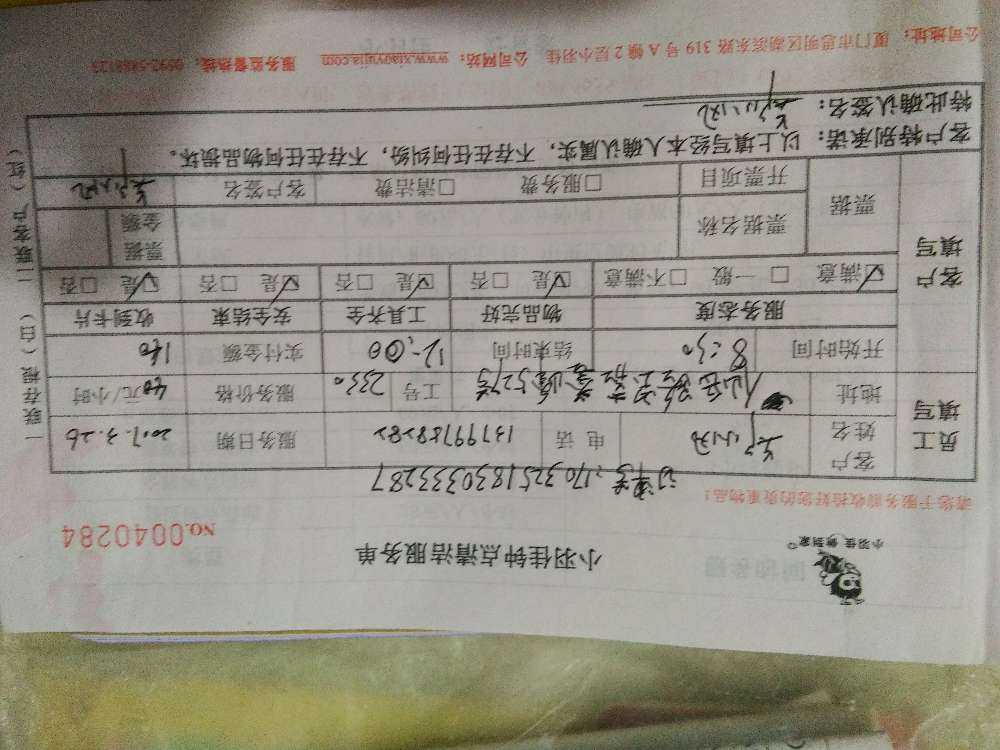 小羽佳 帮到家
小羽佳钟点清洁服务单
NO.0040284
请您于服务前收拾好您的贵重物品!
订单号:17032518303333287
员工填写
客户姓名 电话 13799788282 服务日期 2017.3.26
地址 工号 2330 服务价格 40元/小时
开始时间 8:30 结束时间 12:00 实付金额 140
服务态度 物品完好 工具齐全 安全结束 收到卡片
客户填写
☑满意 □一般 □不满意 ☑是 □否 ☑是 □否 ☑是 □否 ☑是 □否
票据 票据名称 票据金额
开票项目 □服务费 □清洁费 客户签名
客户特别承诺:以上填写经本人确认属实,不存在任何纠纷,不存在任何物品损坏。
特此确认签名:
公司地址:厦门市思明区湖滨东路 319 号 A 幢 2 层小羽佳 公司网站:www.xiaoyujia.com 服务监督热线:0592-5888123
一联存根(白) 二联客户(红)